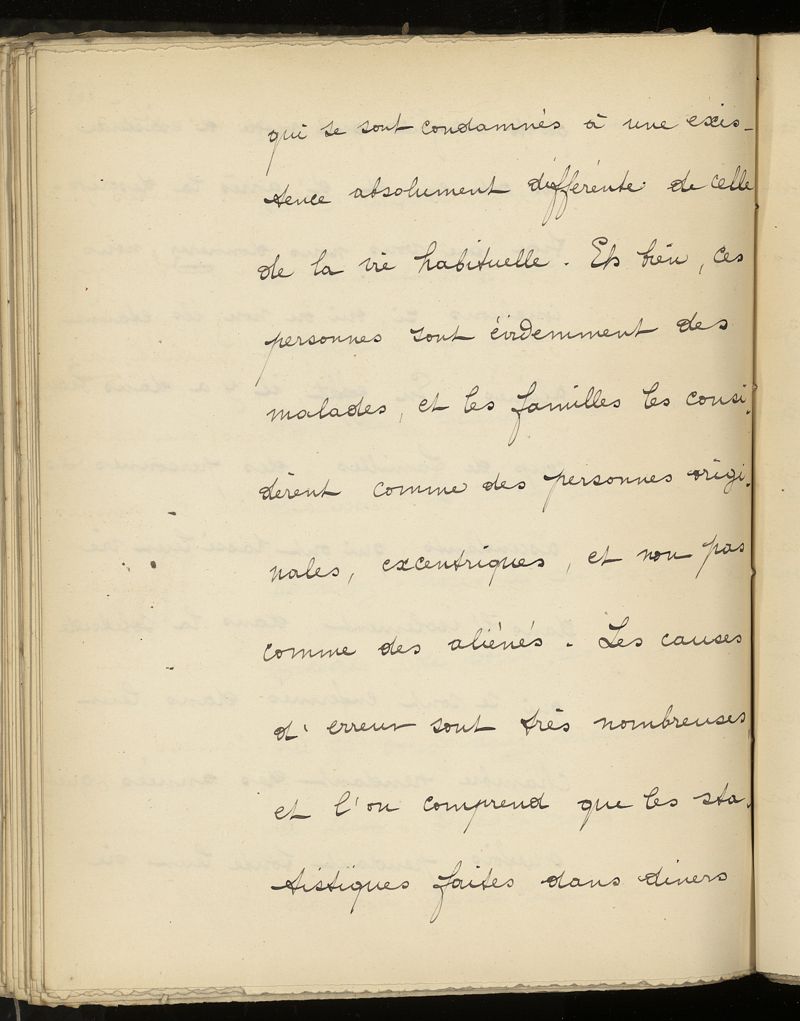 qui se sont condamnés à une exis-
tence absolument différente de celle
de la vie habituelle. Eh bien, ces
personnes sont évidemment des
malades, et les familles les consi-
dèrent comme des personnes origi-
nales, excentriques, et non pas
comme des aliénés. Les causes
d'erreur sont très nombreuses
et l'on comprend que les sta-
tistiques faites dans divers